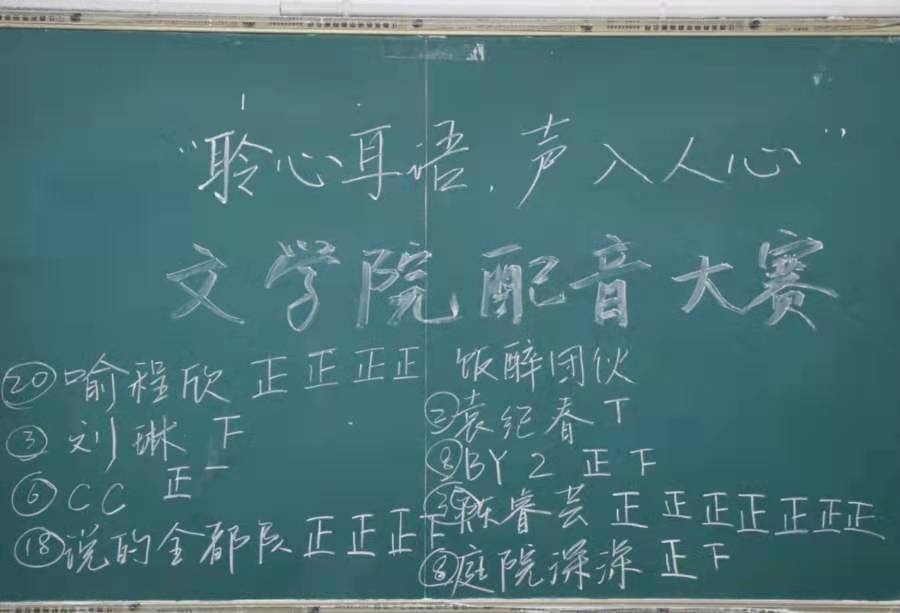 “聆心耳语，声入人心”
文学院配音大赛
⑳喻程欣 正正正正
③刘琳 下
⑥CC 正一
⑱说的全都队 正正正下
饭醉团伙
②袁纪春 丅
⑧BY2 正下
㉟陈睿芸 正正正正正正正
⑧庭院深深 正下